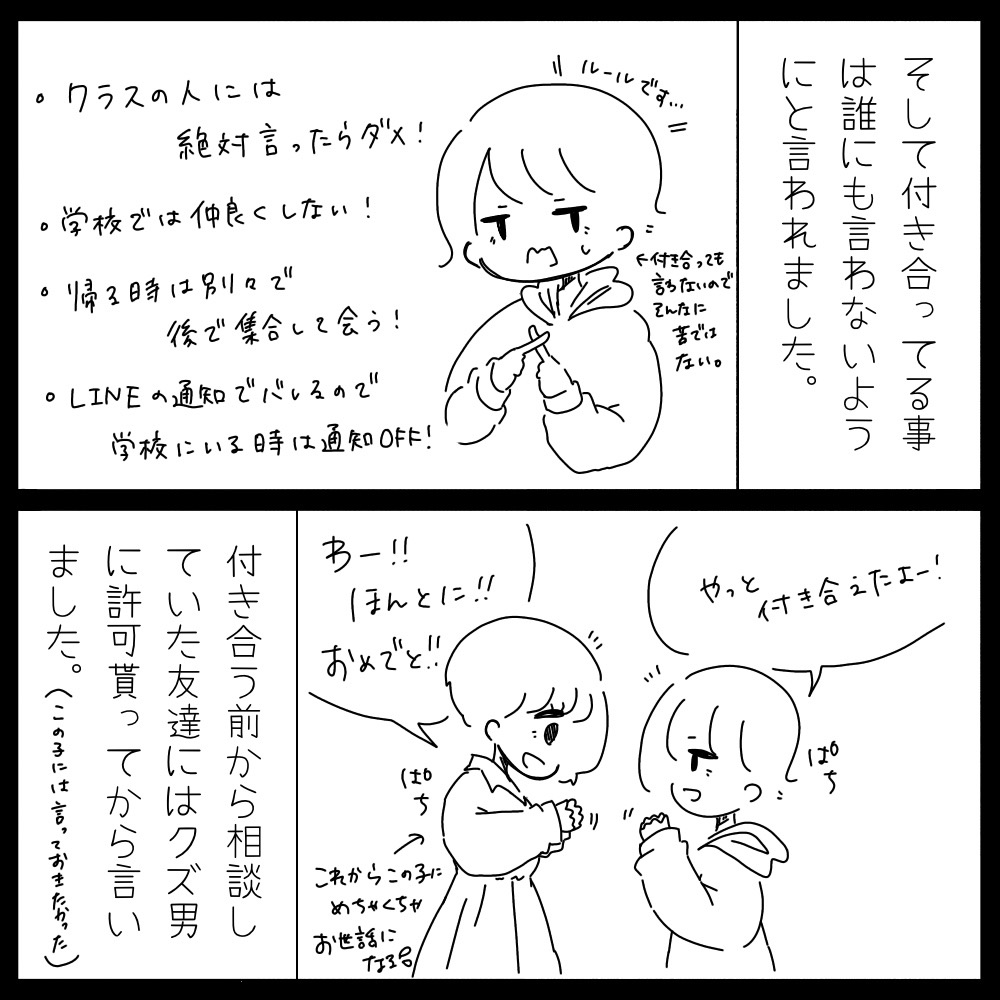 そして付き合ってる事
は誰にも言わないよう
にと言われました。
ルールです…
・クラスの人には
絶対言ったらダメ!
・学校では仲良くしない!
・帰る時は別々で
後で集合して会う!
・LINEの通知でバレるので
学校にいる時は通知OFF!
←付き合っても
言わないので
そんなに
苦では
ない。
やっと
付き合えたよー!
ぱち
わー!!
ほんとに!!
おめでと!!
ぱち
これからこの子に
めちゃくちゃ
お世話に
なる
付き合う前から相談し
ていた友達にはクズ男
に許可貰ってから言い
ました。(この子には言っておきたかった)